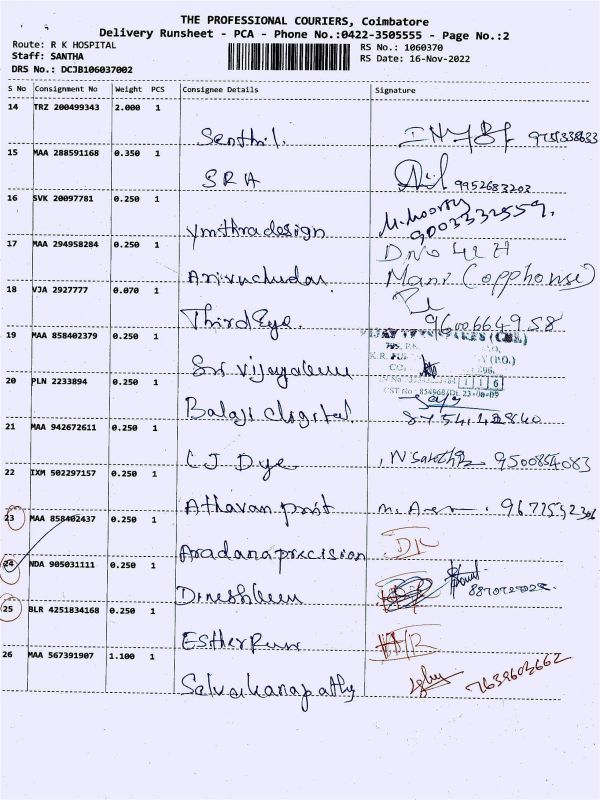 THE PROFESSIONAL COURIERS, Coimbatore
Delivery Runsheet - PCA - Phone No.:0422-3505555 - Page No.:2
Route: R K HOSPITAL
Staff: SANTHA
DRS No.: DCJB106037002
RS No.: 1060370
RS Date: 16-Nov-2022
S No Consignment No Weight PCS Consignee Details Signature
14 TRZ 200499343 2.000 1
Senthil.
15 MAA 288591168 0.350 1
SRA 9952683203
16 SVK 20097781 0.250 1
ymthradesign M.Moorthy 9003332559.
17 MAA 294958284 0.250 1
D.No 42 A
Arivuchudar Mani (opphouse)
18 VJA 2927777 0.070 1
ThirdEye. 9600664958
19 MAA 858402379 0.250 1
Sri vijayalaxmi
20 PLN 2233894 0.250 1
CST No : 854968/Dt. 23-09-09
Balaji digital 8754142840
21 MAA 942672611 0.250 1
CJ Dye 9500854083
22 IXM 502297157 0.250 1
Athavan print
23 MAA 858402437 0.250 1
Aradana precision DK
24 NDA 905031111 0.250 1
25 BLR 4251834168 0.250 1
26 MAA 567391907 1.100 1
Selvakanapathy 7639603662